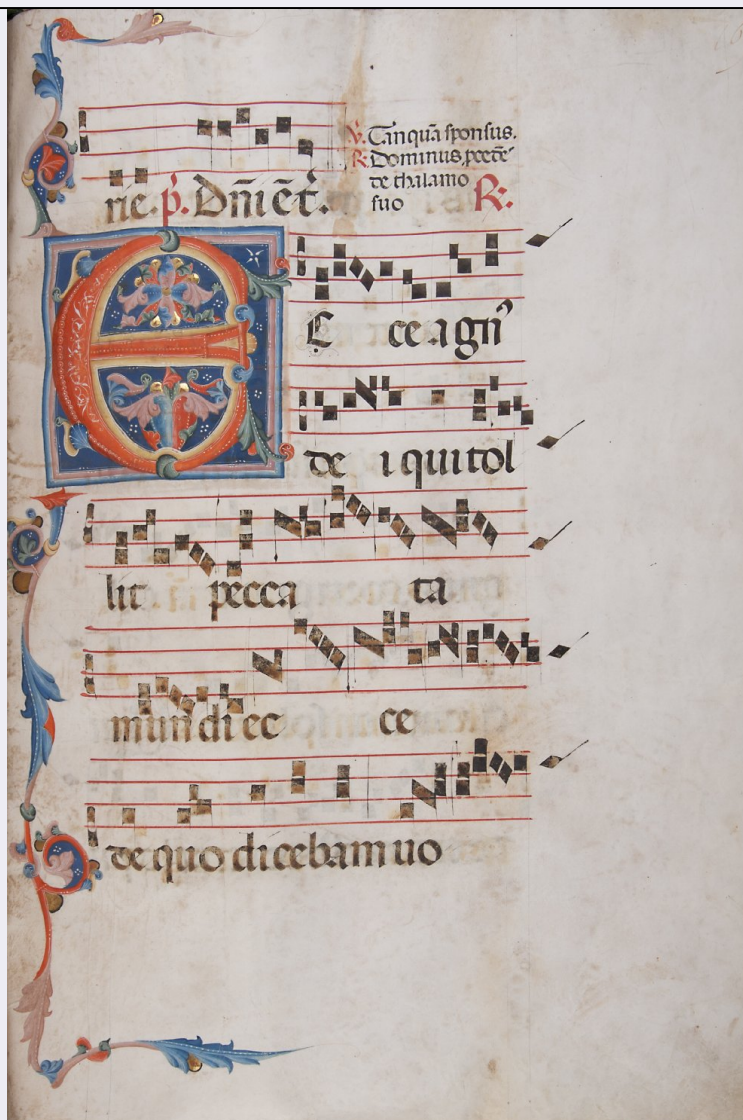 ℣. Tanquã sponsus.
℟. Dominus procẽ
de thalamo
suo ℟.
rie. p̃. Dñi ẽ t̃.
E cce agn᾽
de i qui tol
lit pecca ta
mundi ec ce
de quo dicebam uo